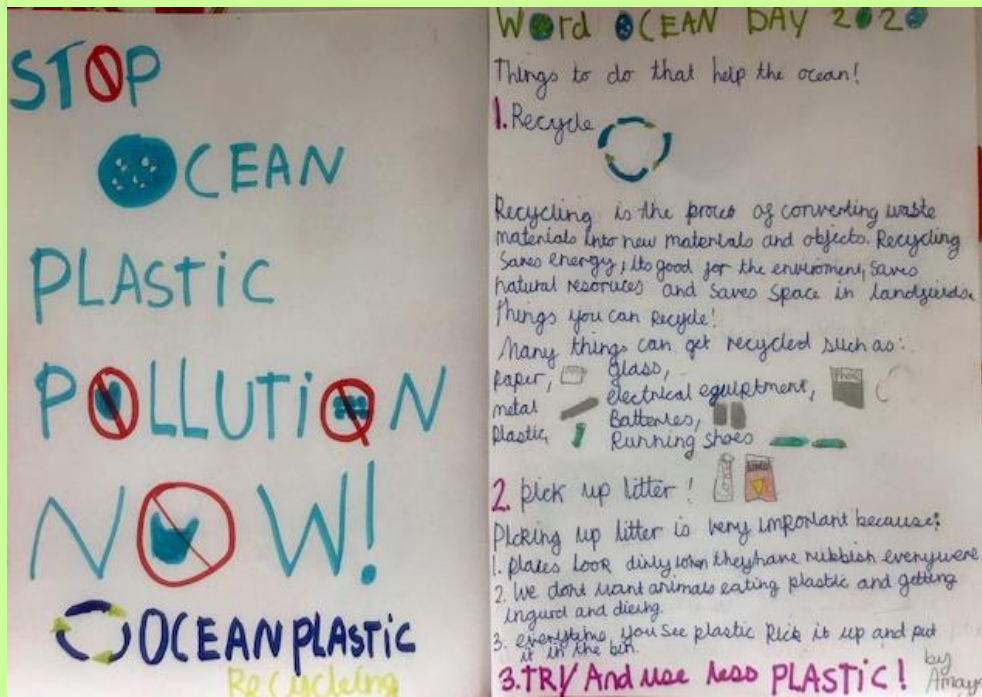 STOP
OCEAN
PLASTiC
POLLUTiON
NOW!
OCEANPLASTiC
Recycleing
Word OCEAN DAY 2020
Things to do that help the ocean!
1. Recycle
Recycling is the proces of converting waste
materials into new materials and objects. Recycling
Saves energy, Its good for the enviroment, saves
natural resoruces and saves space in
Things you can Recycle!
Many things can get recycled such as:
Paper, glass,
metal electrical equiptment,
Plastic, Batteries,
Running shoes
2. pick up litter!
Picking up litter is very important because:
1. places look dirty when they have rubbish everywere
2. We dont want animals eating plastic and getting
ingurd and dieing.
3. everytime, you see plastic Pick it up and put
it in the bin.
3. TRY And use less PLASTIC!
by
Amaya